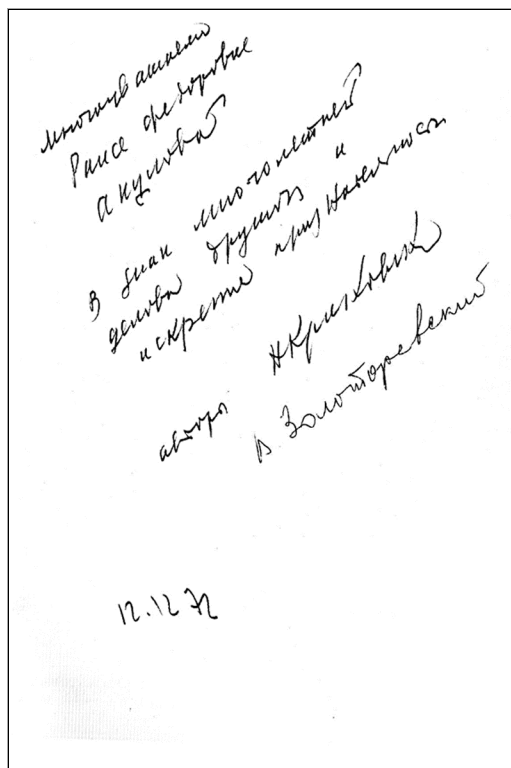 многоуважаемо
Раисе Федоровне
Акуловой
В знак многолетней
деловой дружбы и
искренне признательности
авторы НКришковский
В. Золоторевский
12.12 72